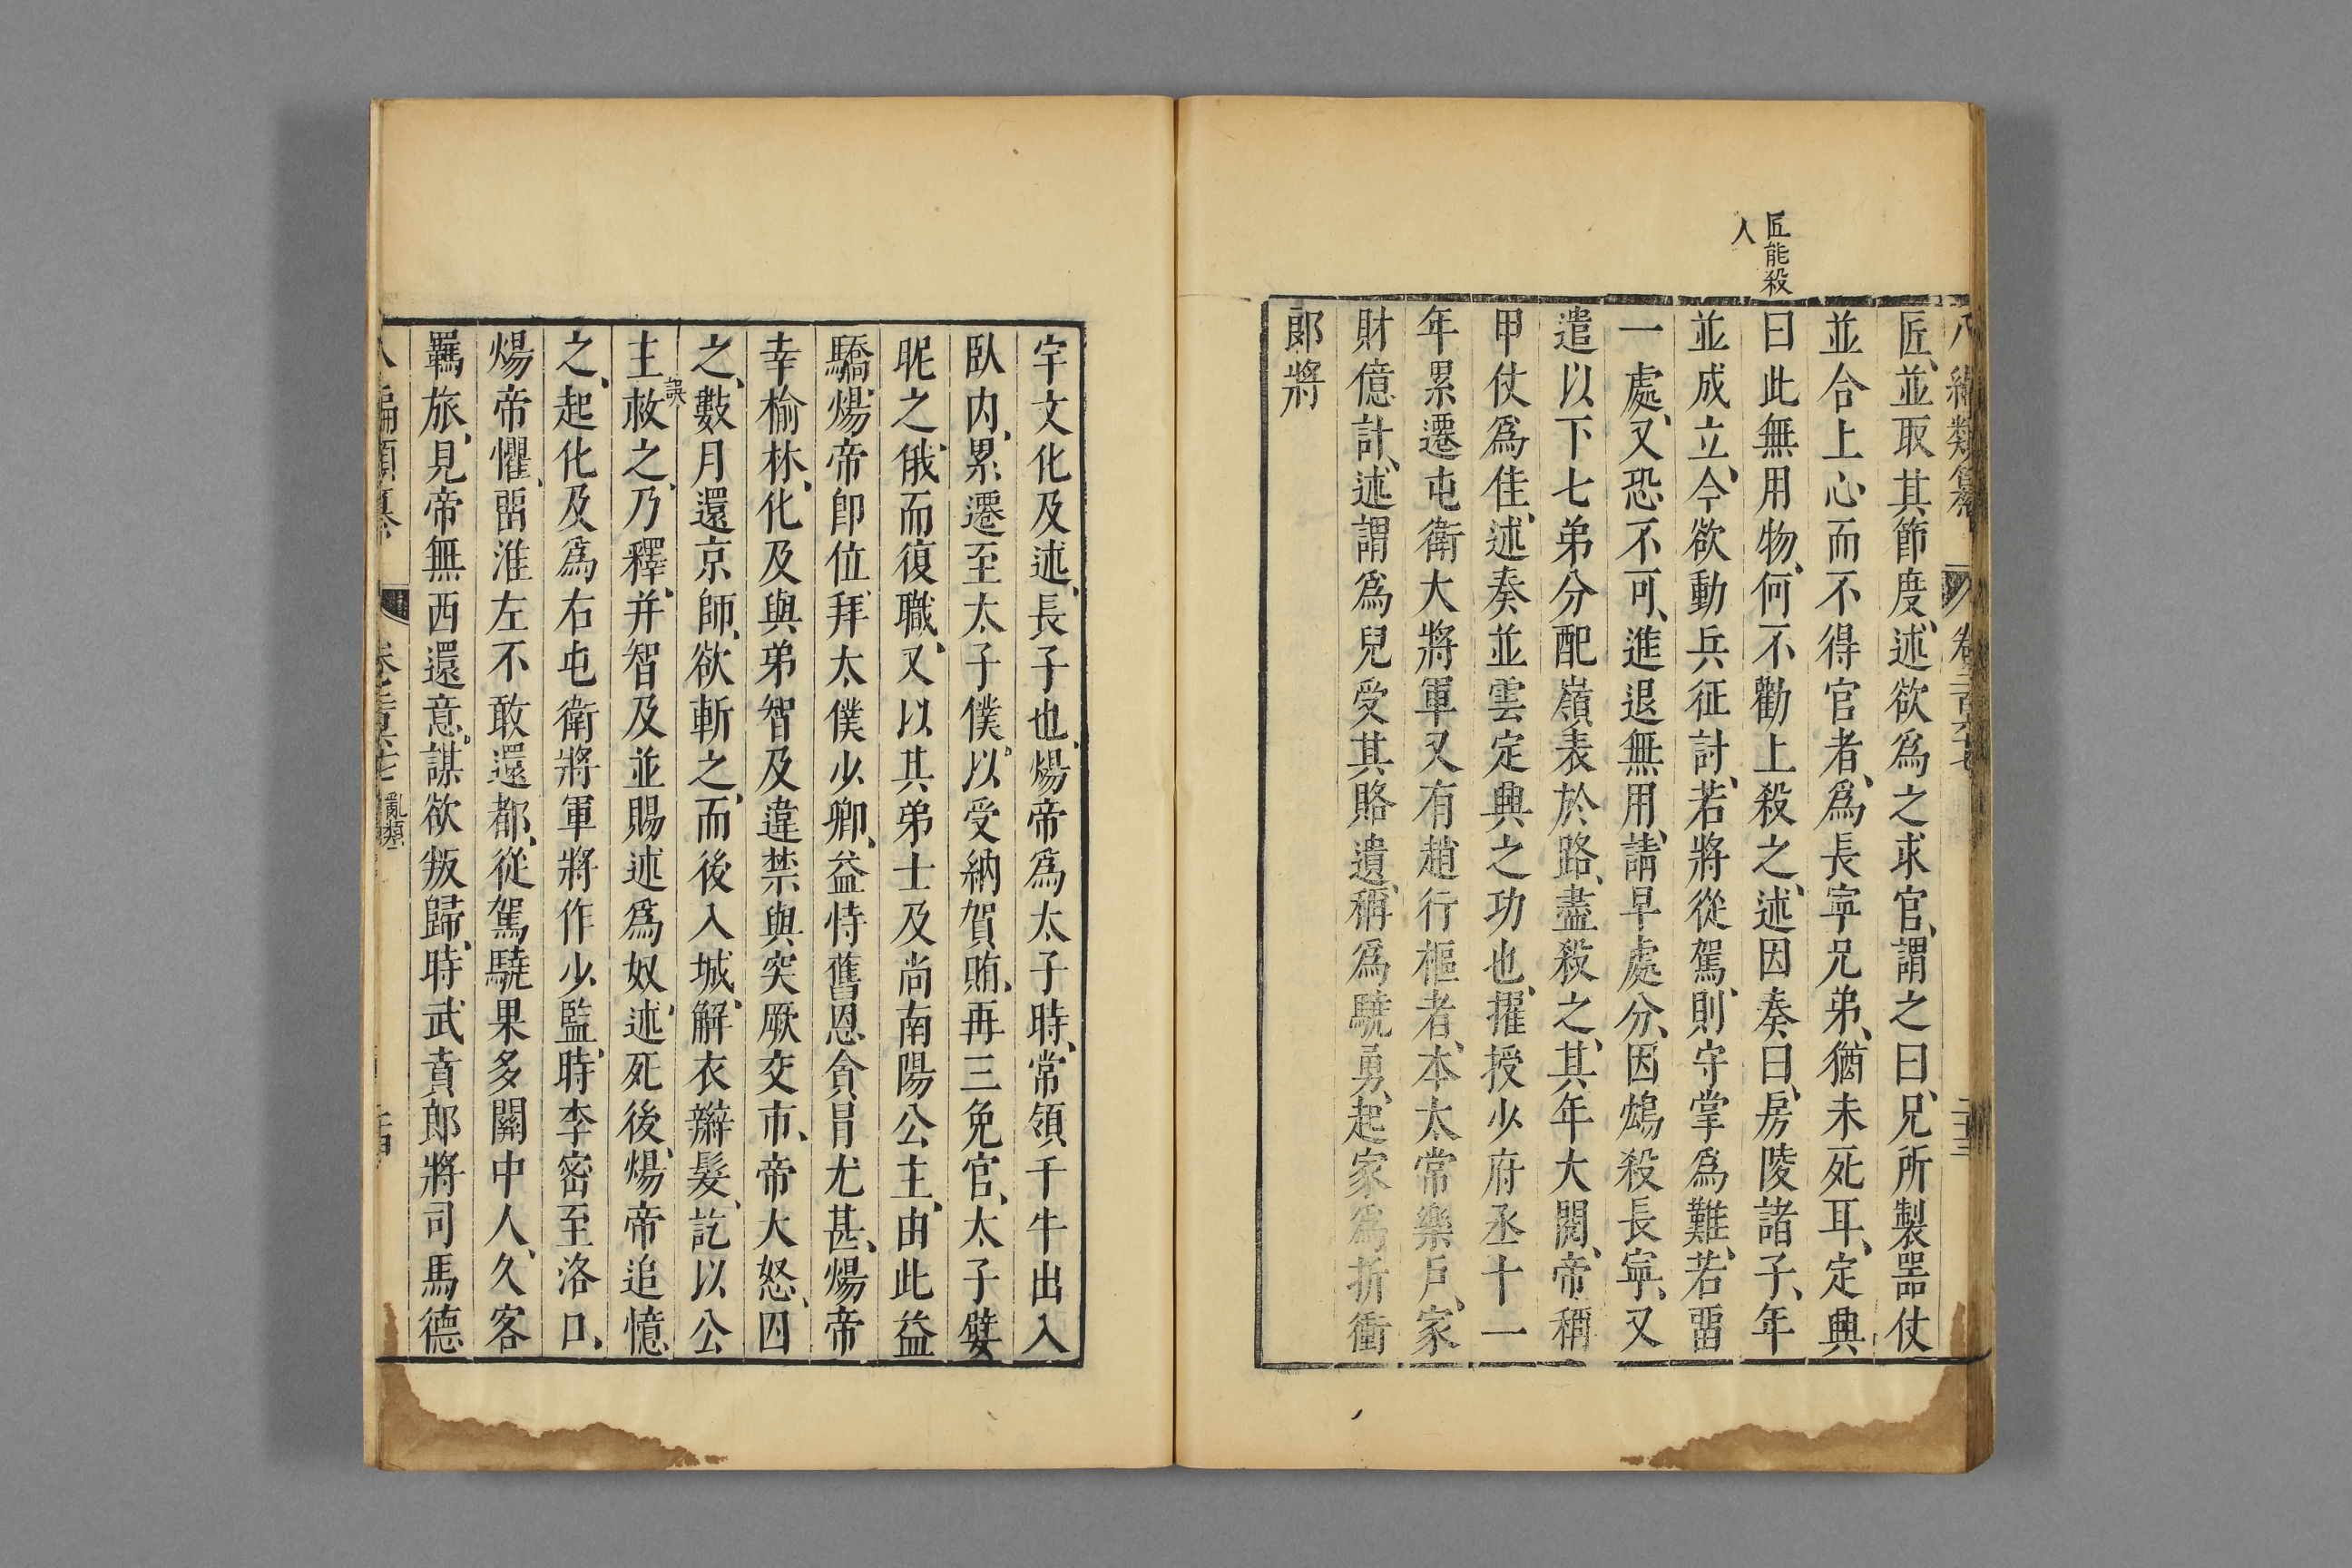 八編類纂
卷二百六十七
二十三
匠能殺
人
匠、並取其節度、述欲爲之求官、謂之曰、兄所製噐仗
並合上心、而不得官者、爲長寧兄弟、猶未死耳、定興
曰此無用物、何不勸上殺之、述因奏曰、房陵諸子、年
並成立、今欲動兵征討、若將從駕、則守掌爲難、若畱
一處、又恐不可、進退無用、請早處分、因鴆殺長寧、又
遣以下七弟分配嶺表於路、盡殺之、其年大閱、帝稱
甲仗爲佳、述奏並雲定興之功也、擢授少府丞十一
年累遷屯衛大將軍又有趙行樞者、本太常樂戶、家
財億計、述謂爲兒受其賂遺、稱爲驍勇、起家爲折衝
郎將
宇文化及述、長子也、煬帝爲太子時、常領千牛出入
臥内、累遷至太子僕、以受納賀賄、再三免官、太子嬖
昵之、俄而復職、又以其弟士及尚南陽公主、由此益
驕、煬帝卽位、拜太僕少卿、益恃舊恩貪冐尤甚、煬帝
幸榆林、化及與弟智及違禁與突厥交市、帝大怒、囚
之、數月還京師、欲斬之、而後入城、解衣辮髮、訖以公
主救之、乃釋、并智及並賜述爲奴、述死後、煬帝追憶
誤
之、起化及爲右屯衛將軍將作少監、時李密至洛口、
煬帝懼、畱淮左不敢還都、從駕驍果多關中人、久客
羈旅、見帝無西還意、謀欲叛歸、時武賁郎將司馬德